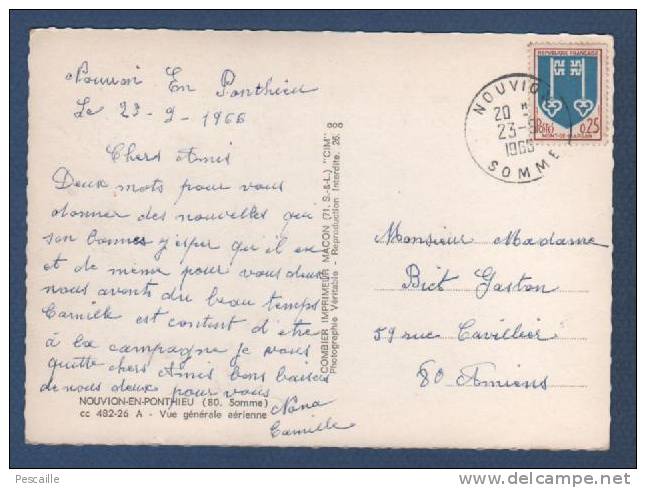 Nouvion En Ponthieu
Le 23-9-1966
Chers Amis
Deux mots pour vous
donner des nouvelles qui
son bonnes j'esper qu'il en
et de meme pour vous deux
nous avonts du beau temps
Camille est content d'etre
à la campagne je vous
quitte chers Amis bons baisers
de nous deux pour vous
Nana
Camille
NOUVION-EN-PONTHIEU (80. Somme)
cc 482-26 A - Vue générale aérienne
COMBIER IMPRIMEUR MACON (71. S.-&-L.) "CIM"
Photographie Véritable - Reproduction Interdite.
NOUVION
20
23-9
1966
SOMME
REPUBLIQUE FRANÇAISE
Postes 0,25
MONT-DE-MARSAN
Monsieur Madame
Bict Gaston
59 rue Cavillier
80 Amiens
Pescaille
delcampe.net